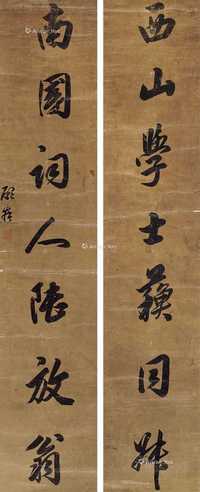 西山學士蘇同叔
南園詞人陸放翁